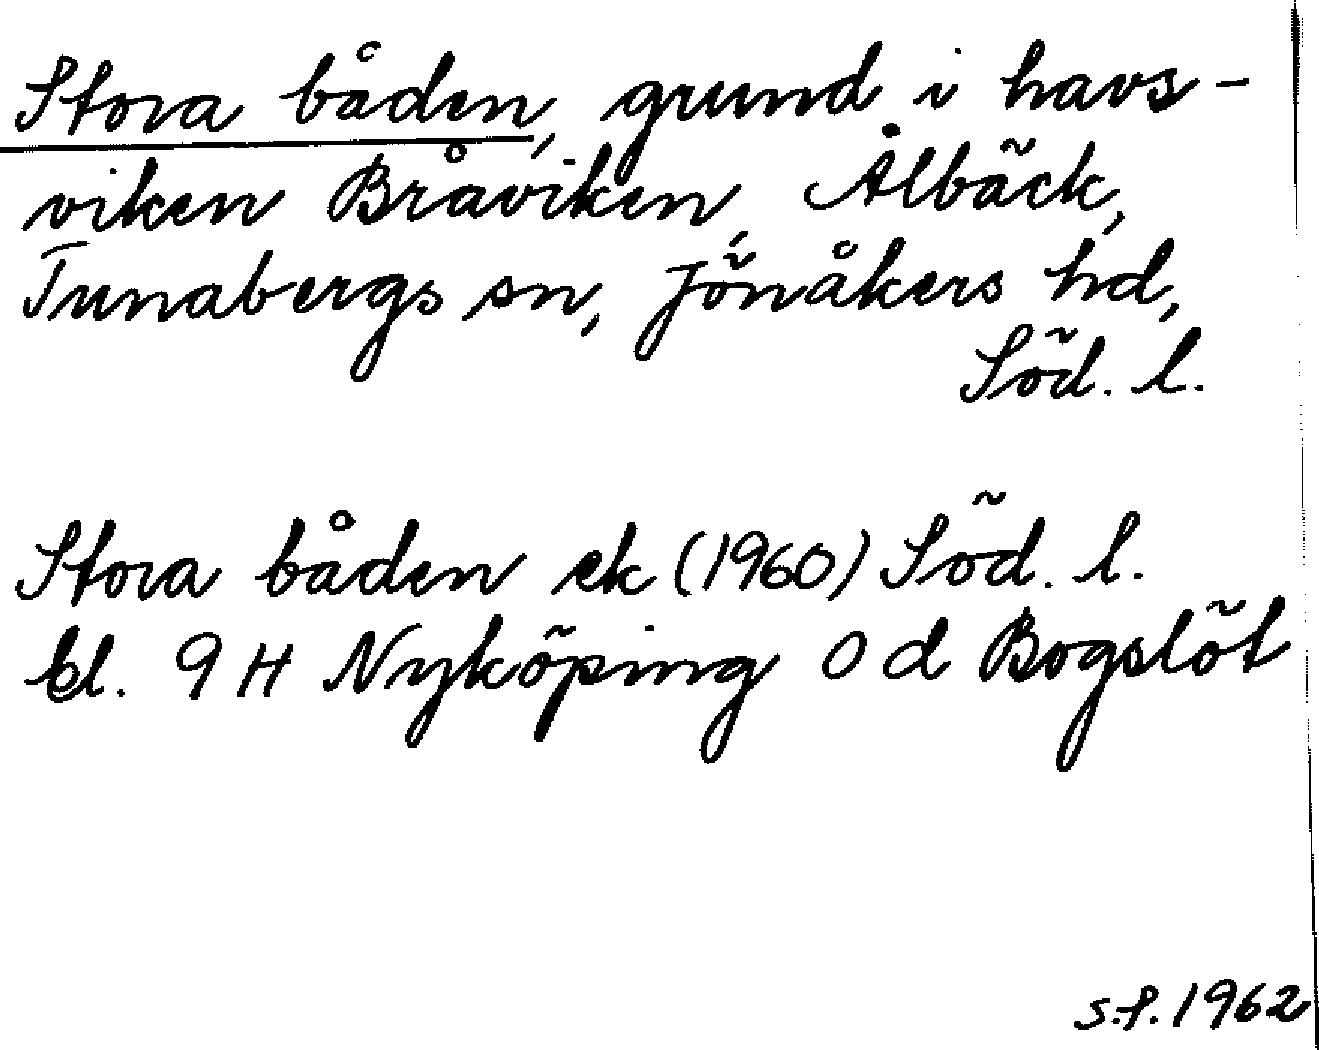 Stora båden, grund i havs-
viken Bråviken, Ålbäck,
Tunabergs sn, Jönåkers hd,
Söd. l.
Stora båden ek (1960) Söd. l.
bl. 9 H Nyköping 0 d Bogslöt
S.P. 1962